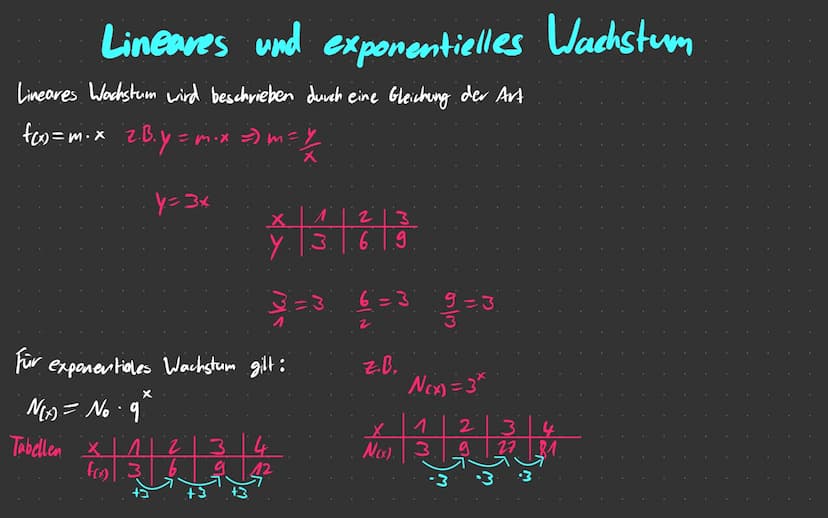 Lineares und exponentielles Wachstum
Lineares Wachstum wird beschrieben durch eine Gleichung der Art
f(x) = m · x z.B. y = m · x ⇒ m = y/x
y = 3x
x | 1 | 2 | 3
y | 3 | 6 | 9
3/1 = 3 6/2 = 3 9/3 = 3
Für exponentiales Wachstum gilt:
N(x) = N₀ · q^x
Tabellen x | 1 | 2 | 3 | 4
f(x) | 3 | 6 | 9 | 12
+3 +3 +3
z.B.
N(x) = 3^x
x | 1 | 2 | 3 | 4
N(x) | 3 | 9 | 27 | 81
·3 ·3 ·3